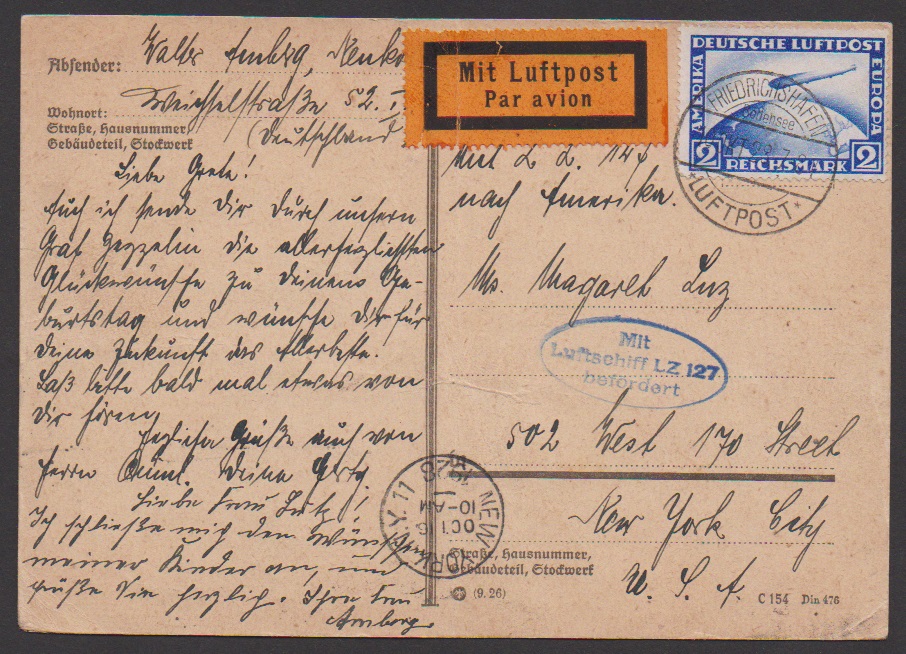 Absender: Walter Amberg, Neukö
Wohnort: Weichselstraße 52. I
Straße, Hausnummer
Gebäudeteil, Stockwerk
(Deutschland
Liebe Grete!
Auch ich sende Dir durch unsern
Graf Zeppelin die allerherzlichsten
Glückwünsche zu Deinem Ge-
burtstag und wünsche Dir für
Deine Zukunft das Allerbeste.
Laß bitte bald mal etwas von
Dir hören.
Herzliche Grüße auch von
Herrn Deine
Liebe Frau Lutz!
Ich schließe mich den Wünschen
meiner Kinder an, und
grüße Sie herzlich. Ihre Frau
Amberg.
Mit Luftpost
Par avion
DEUTSCHE LUFTPOST
AMERIKA
EUROPA
2 REICHSMARK 2
FRIEDRICHSHAFEN
Bodensee
*LUFTPOST*
Mit L. Z. 127
nach Amerika.
Ms. Magaret Luz
Mit
Luftschiff LZ 127
befördert
502 West 170 Street
New York City
U. S. A.
NEW YORK N.Y. 11
OCT 16
10-AM
1928
Straße, Hausnummer,
Gebäudeteil, Stockwerk
(9.26)
C 154 Din 476